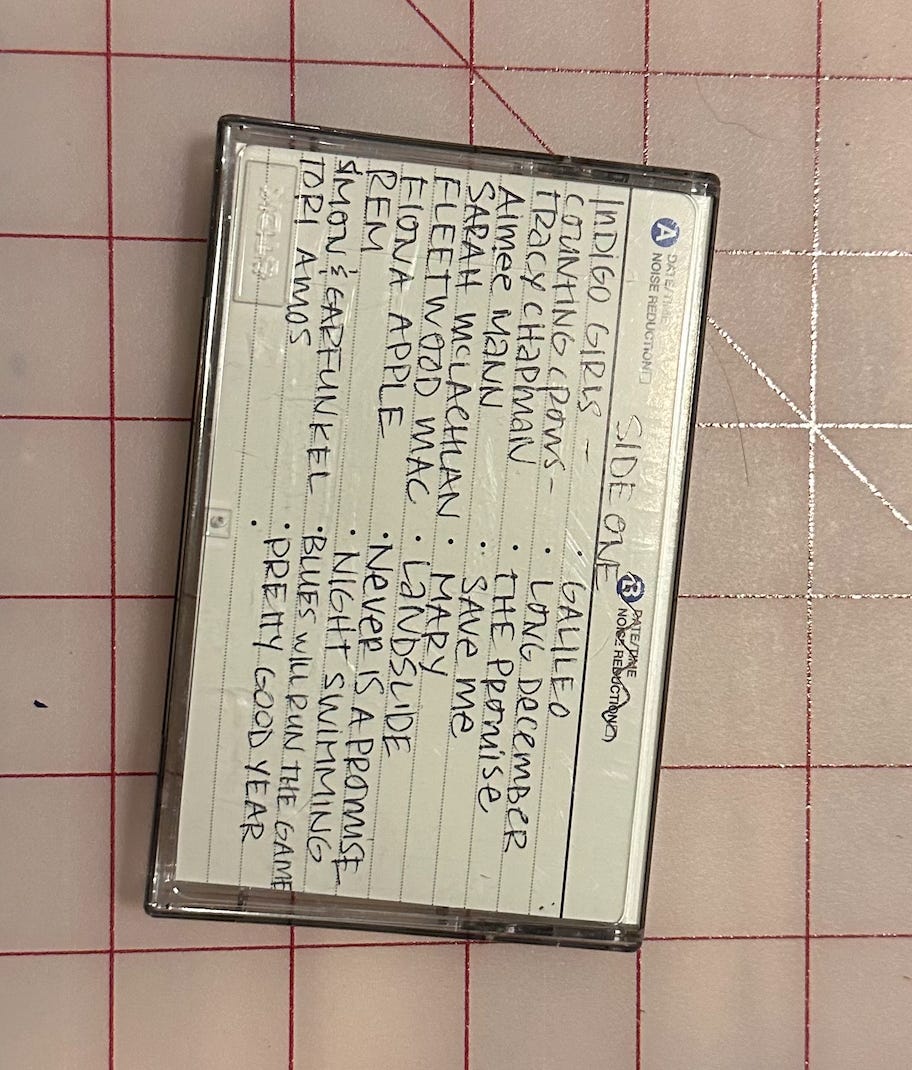 A DATE/TIME
NOISE REDUCTION
B DATE/TIME
NOISE REDUCTION
SIDE ONE
INDIGO GIRLS - • GALILEO
COUNTING CROWS - • LONG DECEMBER
TRACY CHAPMAN • THE PROMISE
AIMEE MANN • SAVE ME
SARAH MCLACHLAN • MARY
FLEETWOOD MAC • LANDSLIDE
FIONA APPLE • NEVER IS A PROMISE
REM • NIGHT SWIMMING
SIMON & GARFUNKEL • BLUES WILL RUN THE GAME
TORI AMOS • PRETTY GOOD YEAR